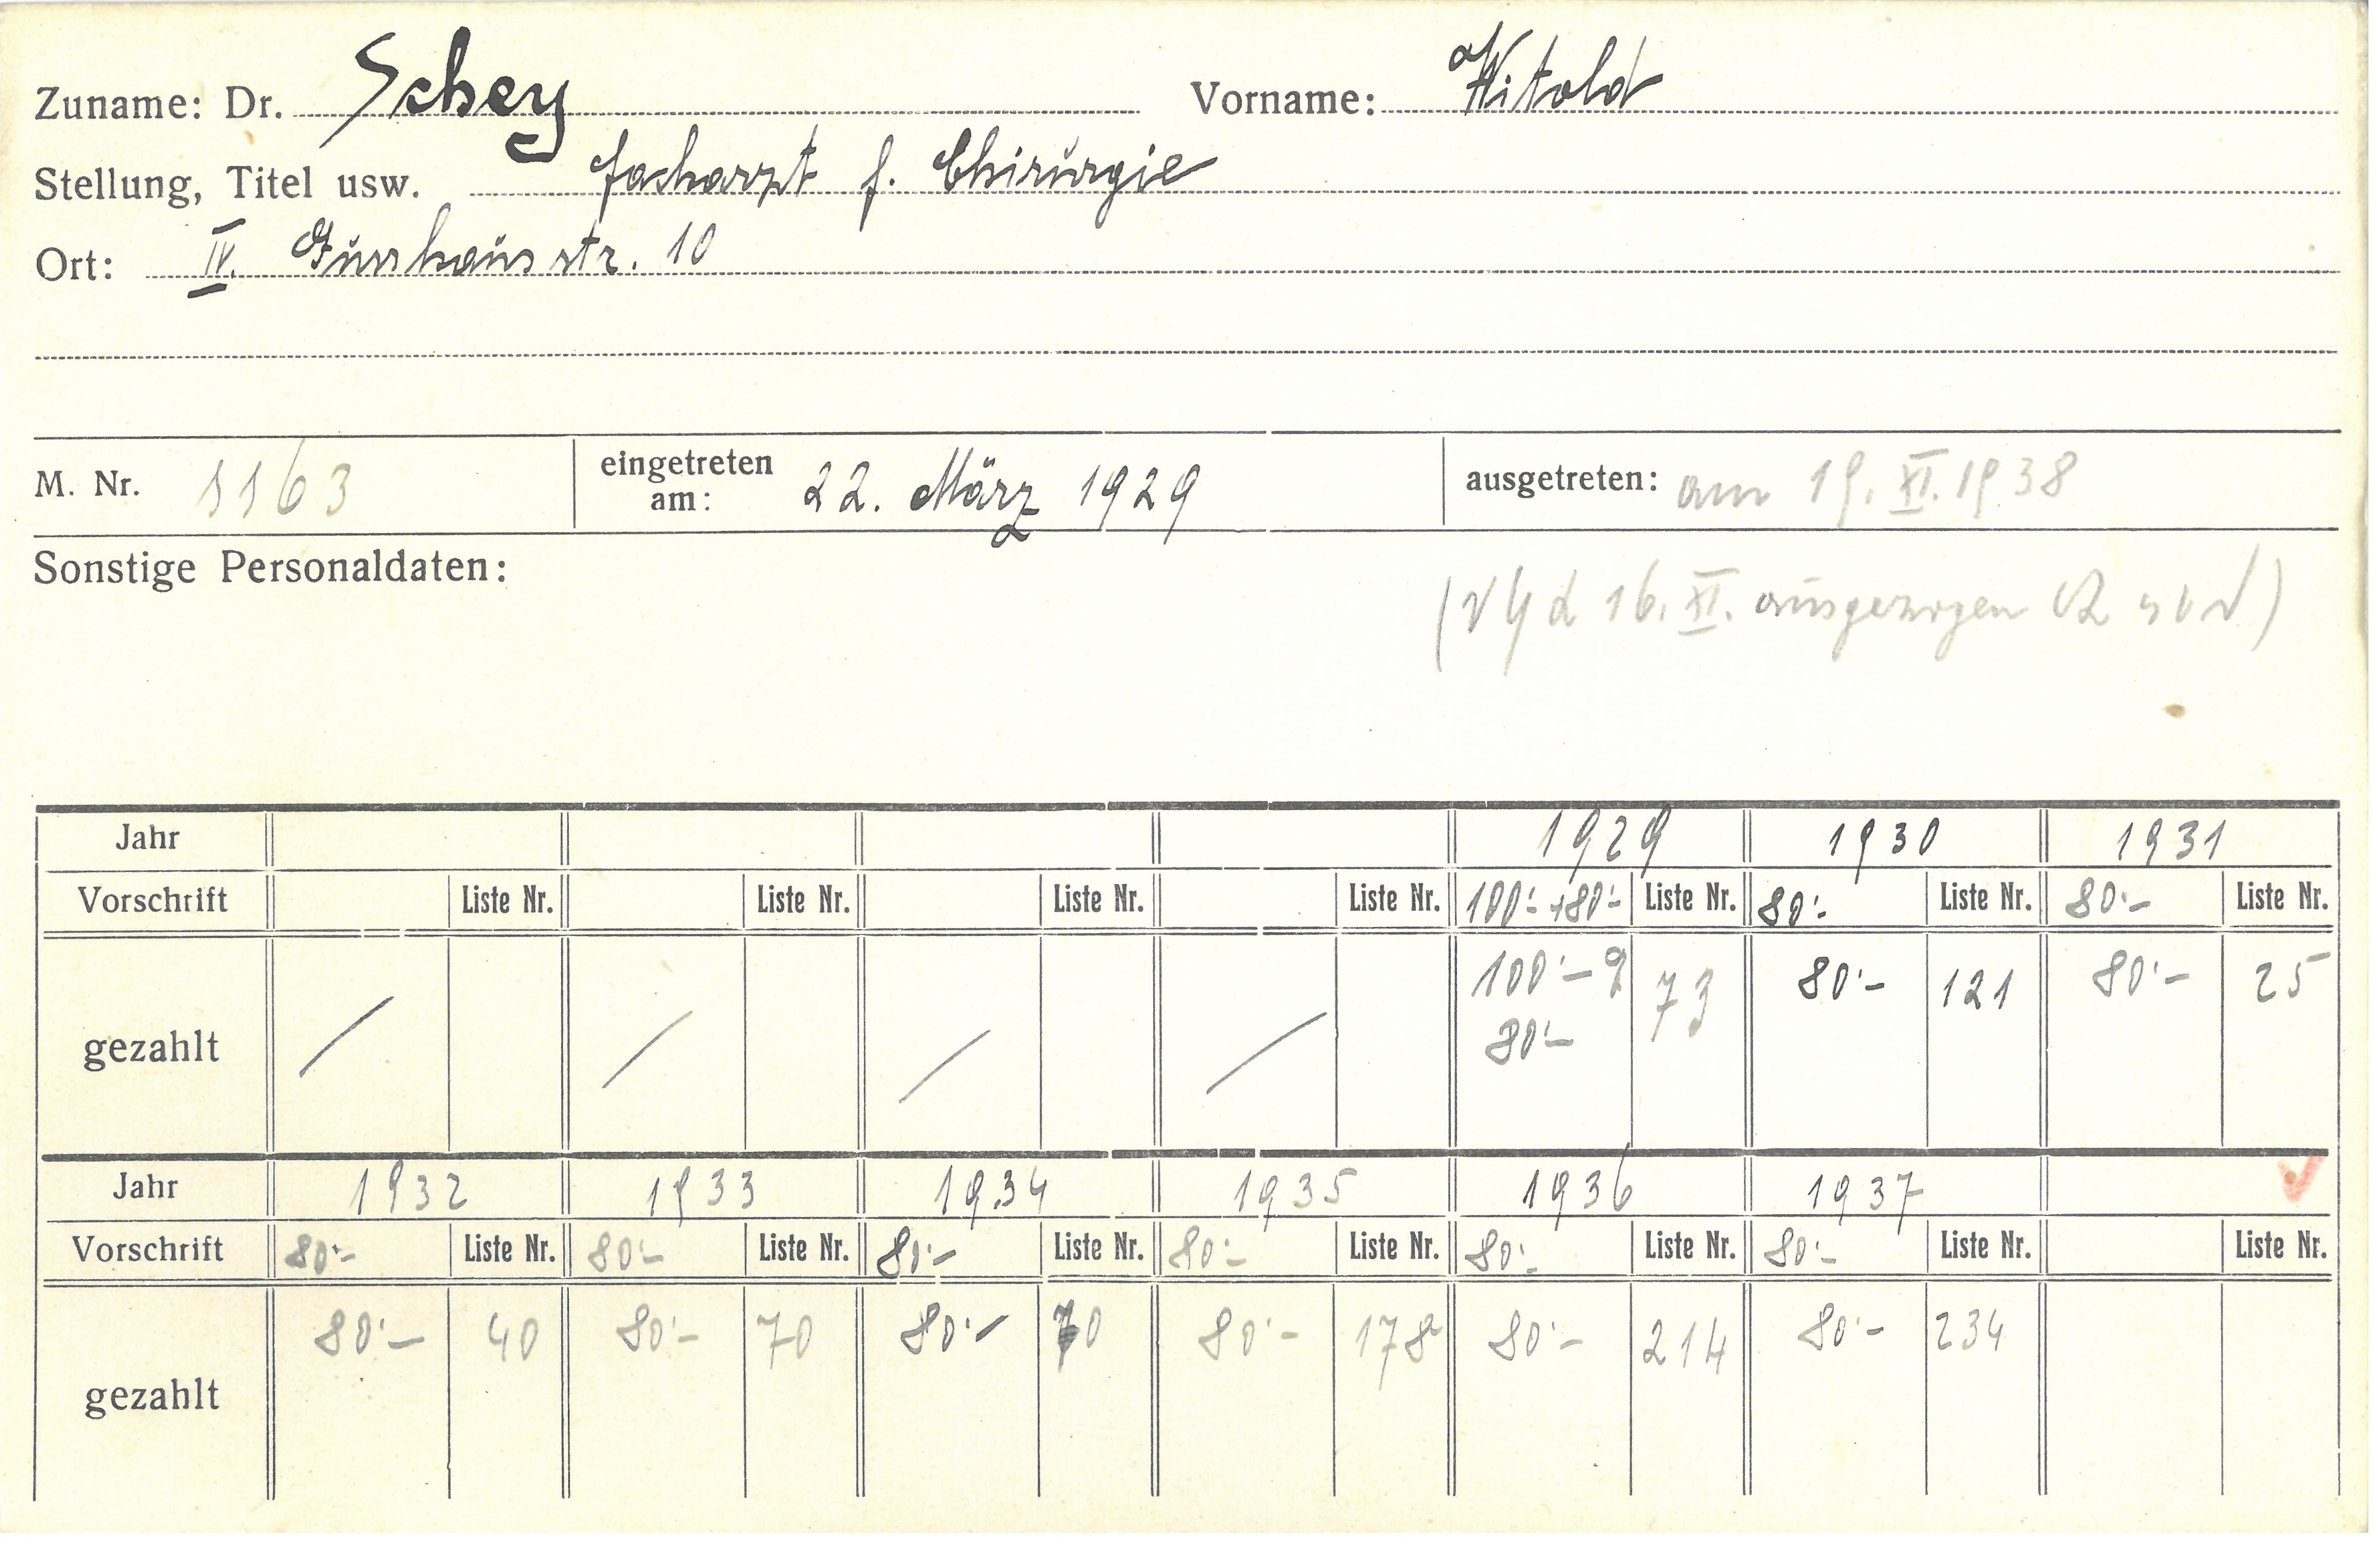 Zuname: Dr. Schey Vorname: Witold
Stellung, Titel usw. Facharzt f. Chirurgie
Ort: IV. Gusshausstr. 10
M. Nr. 1163 eingetreten am: 22. März 1929 ausgetreten: am 19. XI. 1938
Sonstige Personaldaten:
16. XI. ausgezogen
Jahr 1929 1930 1931
Vorschrift Liste Nr. Liste Nr. Liste Nr. Liste Nr. 100'- +80'- Liste Nr. 80'- Liste Nr. 80'- Liste Nr.
gezahlt / / / / 100'- 73 80'- 121 80'- 25
80'-
Jahr 1932 1933 1934 1935 1936 1937
Vorschrift 80'- Liste Nr. 80'- Liste Nr. 80'- Liste Nr. 80'- Liste Nr. 80'- Liste Nr. 80'- Liste Nr. Liste Nr.
gezahlt 80'- 40 80'- 70 80'- 70 80'- 178 80'- 214 80'- 234